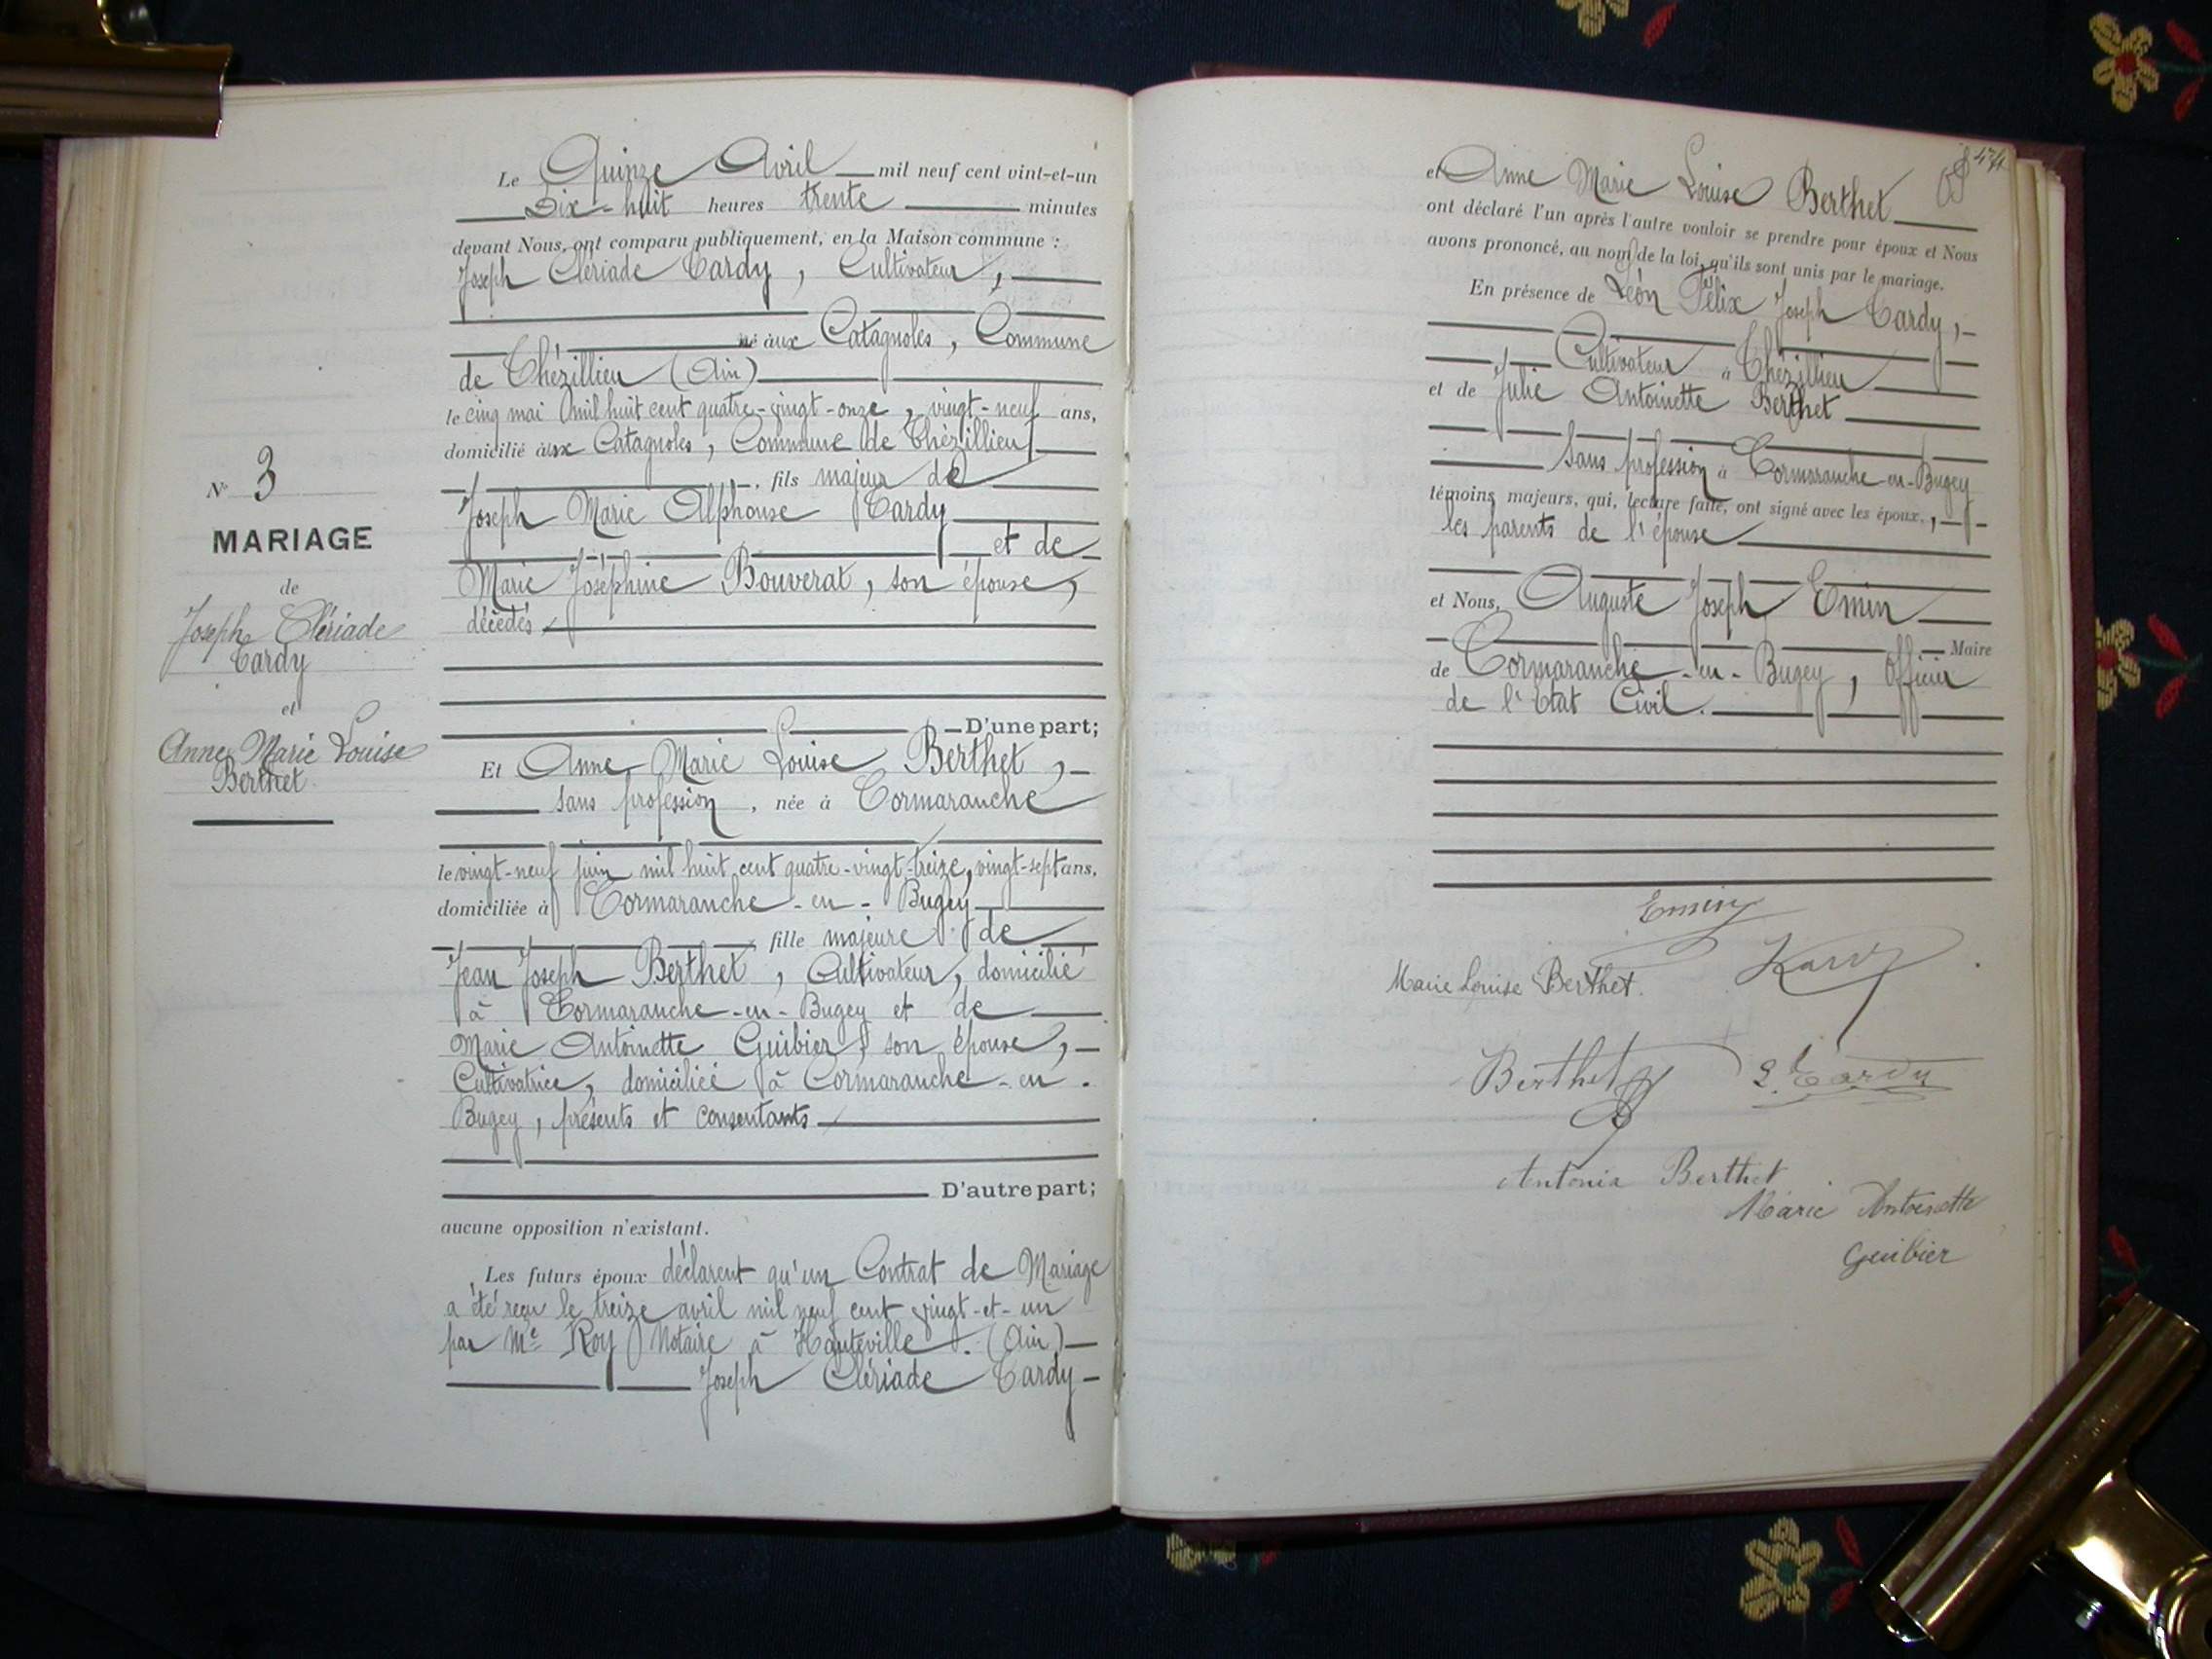 Le Quinze Avril mil neuf cent vint-et-un
Dix-huit heures trente minutes
devant Nous, ont comparu publiquement, en la Maison commune :
Joseph Clériade Tardy, Cultivateur,
né aux Catagnoles, Commune
de Thézillieu (Ain)
le cinq mai mil huit cent quatre-vingt-onze, vingt-neuf ans,
domicilié aux Catagnoles, Commune de Thézillieu
, fils majeur de
Joseph Marie Alphonse Tardy
et de
Marie Joséphine Bouverat, son épouse,
décédés
D'une part;
Et Anne Marie Louise Berthet,
sans profession, née à Cormaranche
le vingt-neuf juin mil huit cent quatre-vingt-treize, vingt-sept ans,
domiciliée à Cormaranche-en-Bugey
, fille majeure de
Jean Joseph Berthet, Cultivateur, domicilié
à Cormaranche-en-Bugey et de
Marie Antoinette Guibier, son épouse,
Cultivatrice, domiciliée à Cormaranche-en-
Bugey, présents et consentants
D'autre part;
aucune opposition n'existant.
Les futurs époux déclarent qu'un Contrat de Mariage
a été reçu le treize avril mil neuf cent vingt-et-un
par Me Roy Notaire à Hauteville. (Ain)
Joseph Clériade Tardy
No 3
MARIAGE
de
Joseph Clériade
Tardy
et
Anne Marie Louise
Berthet
et Anne Marie Louise Berthet
ont déclaré l'un après l'autre vouloir se prendre pour époux et Nous
avons prononcé, au nom de la loi, qu'ils sont unis par le mariage.
En présence de Léon Félix Joseph Tardy,
Cultivateur à Thézillieu
et de Julie Antoinette Berthet
Sans profession à Cormaranche-en-Bugey
témoins majeurs, qui, lecture faite, ont signé avec les époux,
les parents de l'épouse
et Nous, Auguste Joseph Emin
Maire
de Cormaranche-en-Bugey, Officier
de l'Etat Civil.
Emin
Marie Louise Berthet.
Berthet
Tardy
Antonia Berthet
Marie Antoinette
Guibier